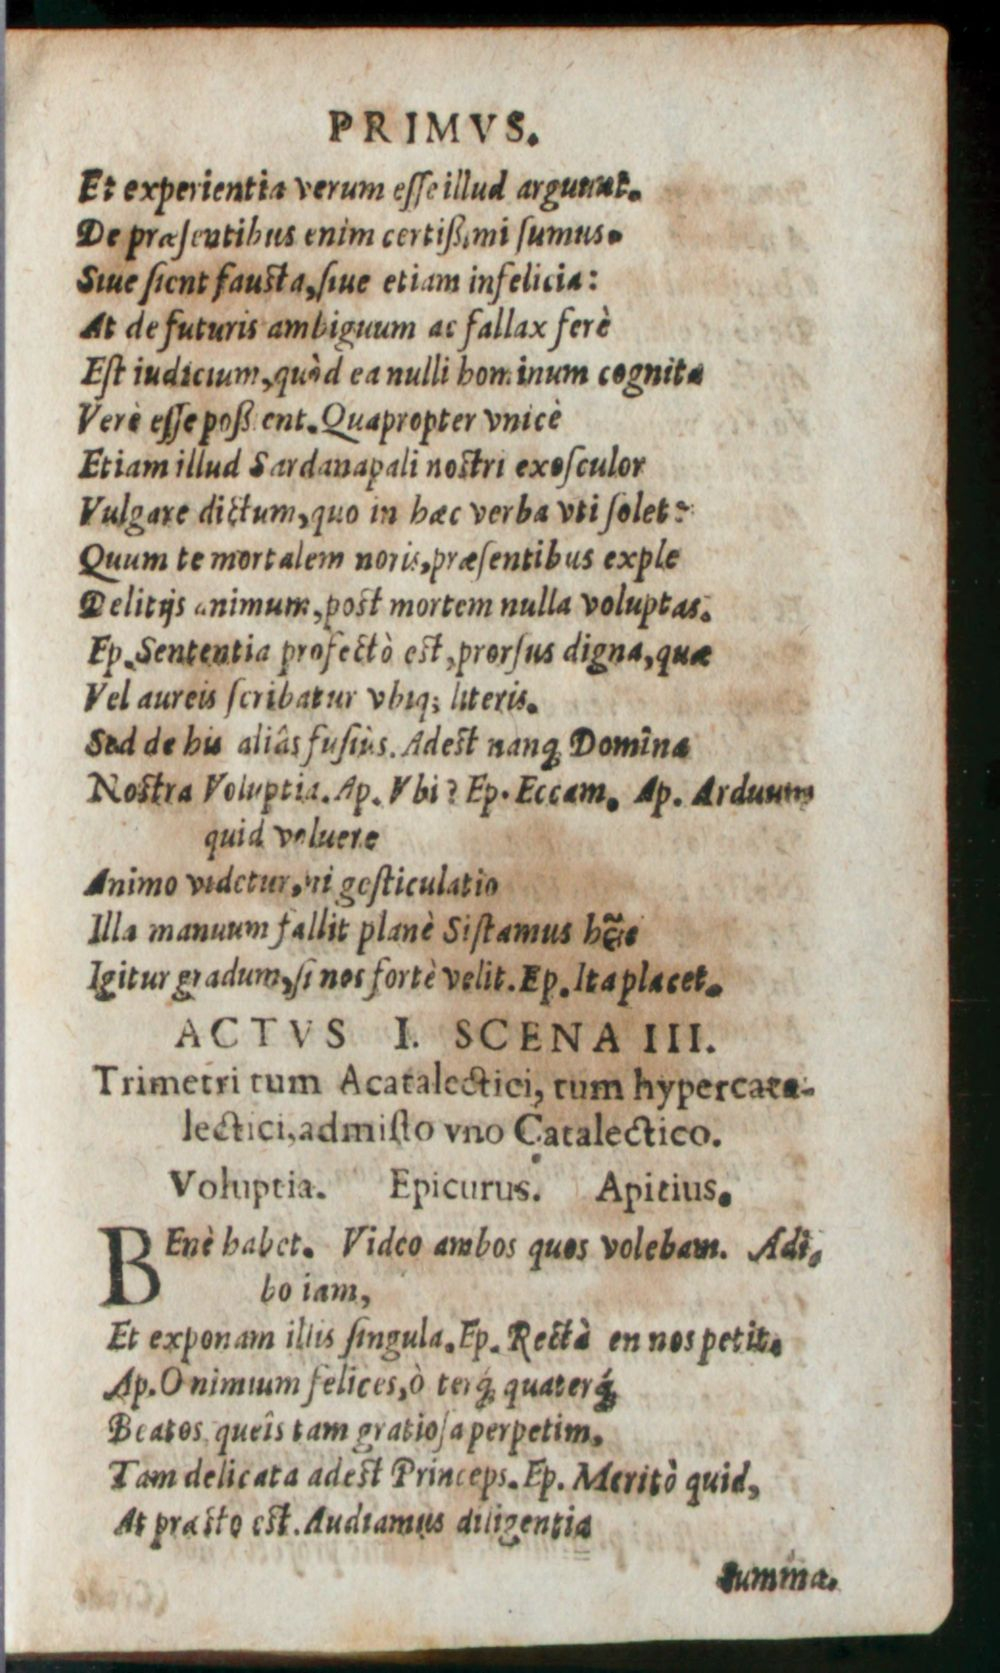 PRIMVS.
Et experientia verum esse illud arguunt.
De præsentibus enim certißimi sumus.
Siue sient fausta, siue etiam infelicia:
At de futuris ambiguum ac fallax ferè
Est iudicium, quòd ea nulli hominum cognita
Verè esse poßient. Quapropter vnicè
Etiam illud Sardanapali nostri exosculor
Vulgare dictum, quo in hæc verba vti solet:
Quum te mortalem noris, præsentibus exple
Delitijs animum, post mortem nulla voluptas.
Ep. Sententia profectò est, prorsus digna, quæ
Vel aureis scribatur vbiq; literis.
Sed de his aliâs fusiùs. Adest nanq; Domina
Nostra Voluptia. Ap. Vbi? Ep. Eccam. Ap. Arduum
quid voluere
Animo videtur, ni gesticulatio
Illa manuum fallit planè Sistamus
Igitur gradum, si nos fortè velit. Ep. Ita placet.
ACTVS I. SCENA III.
Trimetri tum Acatalectici, tum hypercata-
lectici, admisto vno Catalectico.
Voluptia. Epicurus. Apitius.
BEnè habet. Video ambos quos volebam. Adî-
bo iam,
Et exponam illis singula. Ep. Rectà en nos petit.
Ap. O nimium felices, ò terq́; quaterq́;
Beatos queîs tam gratiosa perpetim,
Tam delicata adest Princeps. Ep. Meritò quid,
At præsto est. Audiamus diligentia
summa.